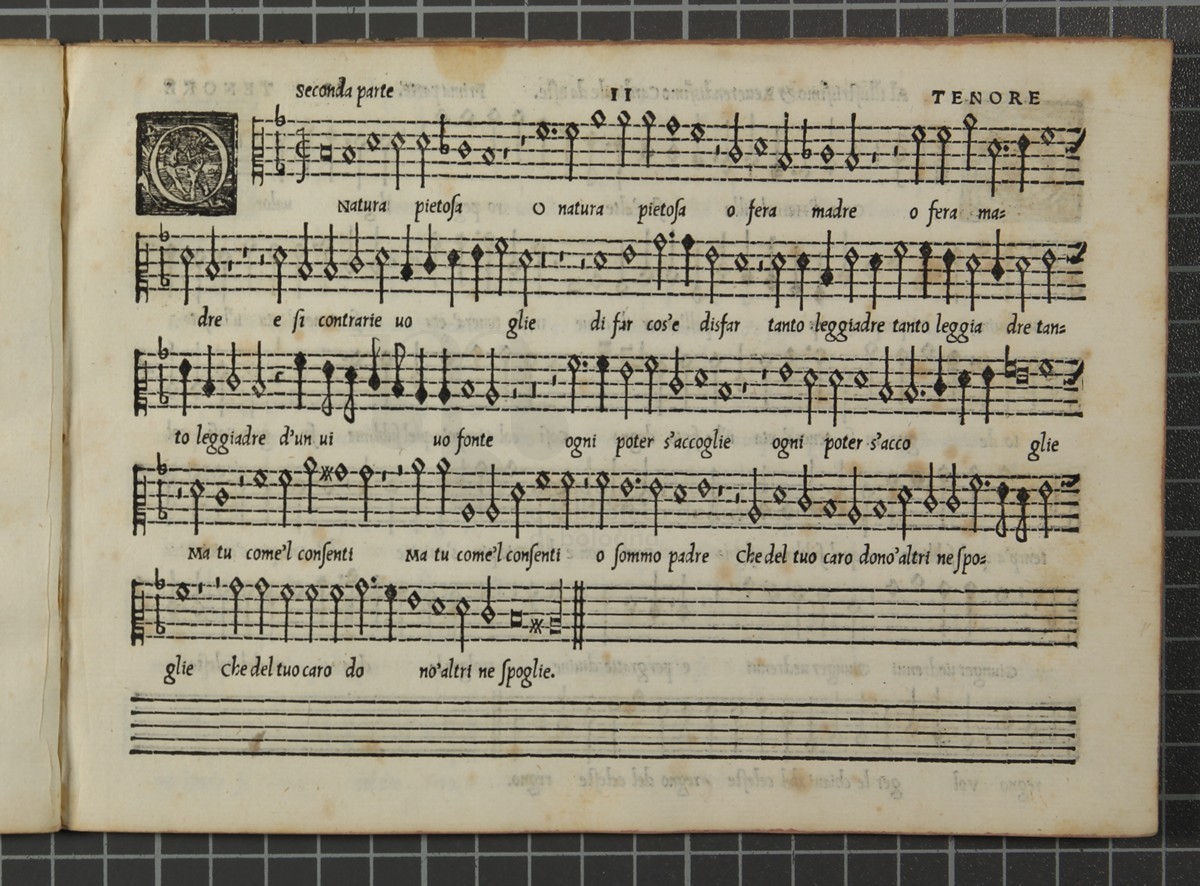 Seconda parte II TENORE
O Natura pietoſa O natura pietoſa o fera madre o fera ma=
dre e ſi contrarie uo glie di far cos'e disfar tanto leggiadre tanto leggia dre tan=
to leggiadre d'un ui uo fonte ogni poter s'accoglie ogni poter s'acco glie
Ma tu come'l conſenti Ma tu come'l conſenti o ſommo padre Che del tuo caro dono'altri ne ſpo=
glie Che del tuo caro do no'altri ne ſpoglie.